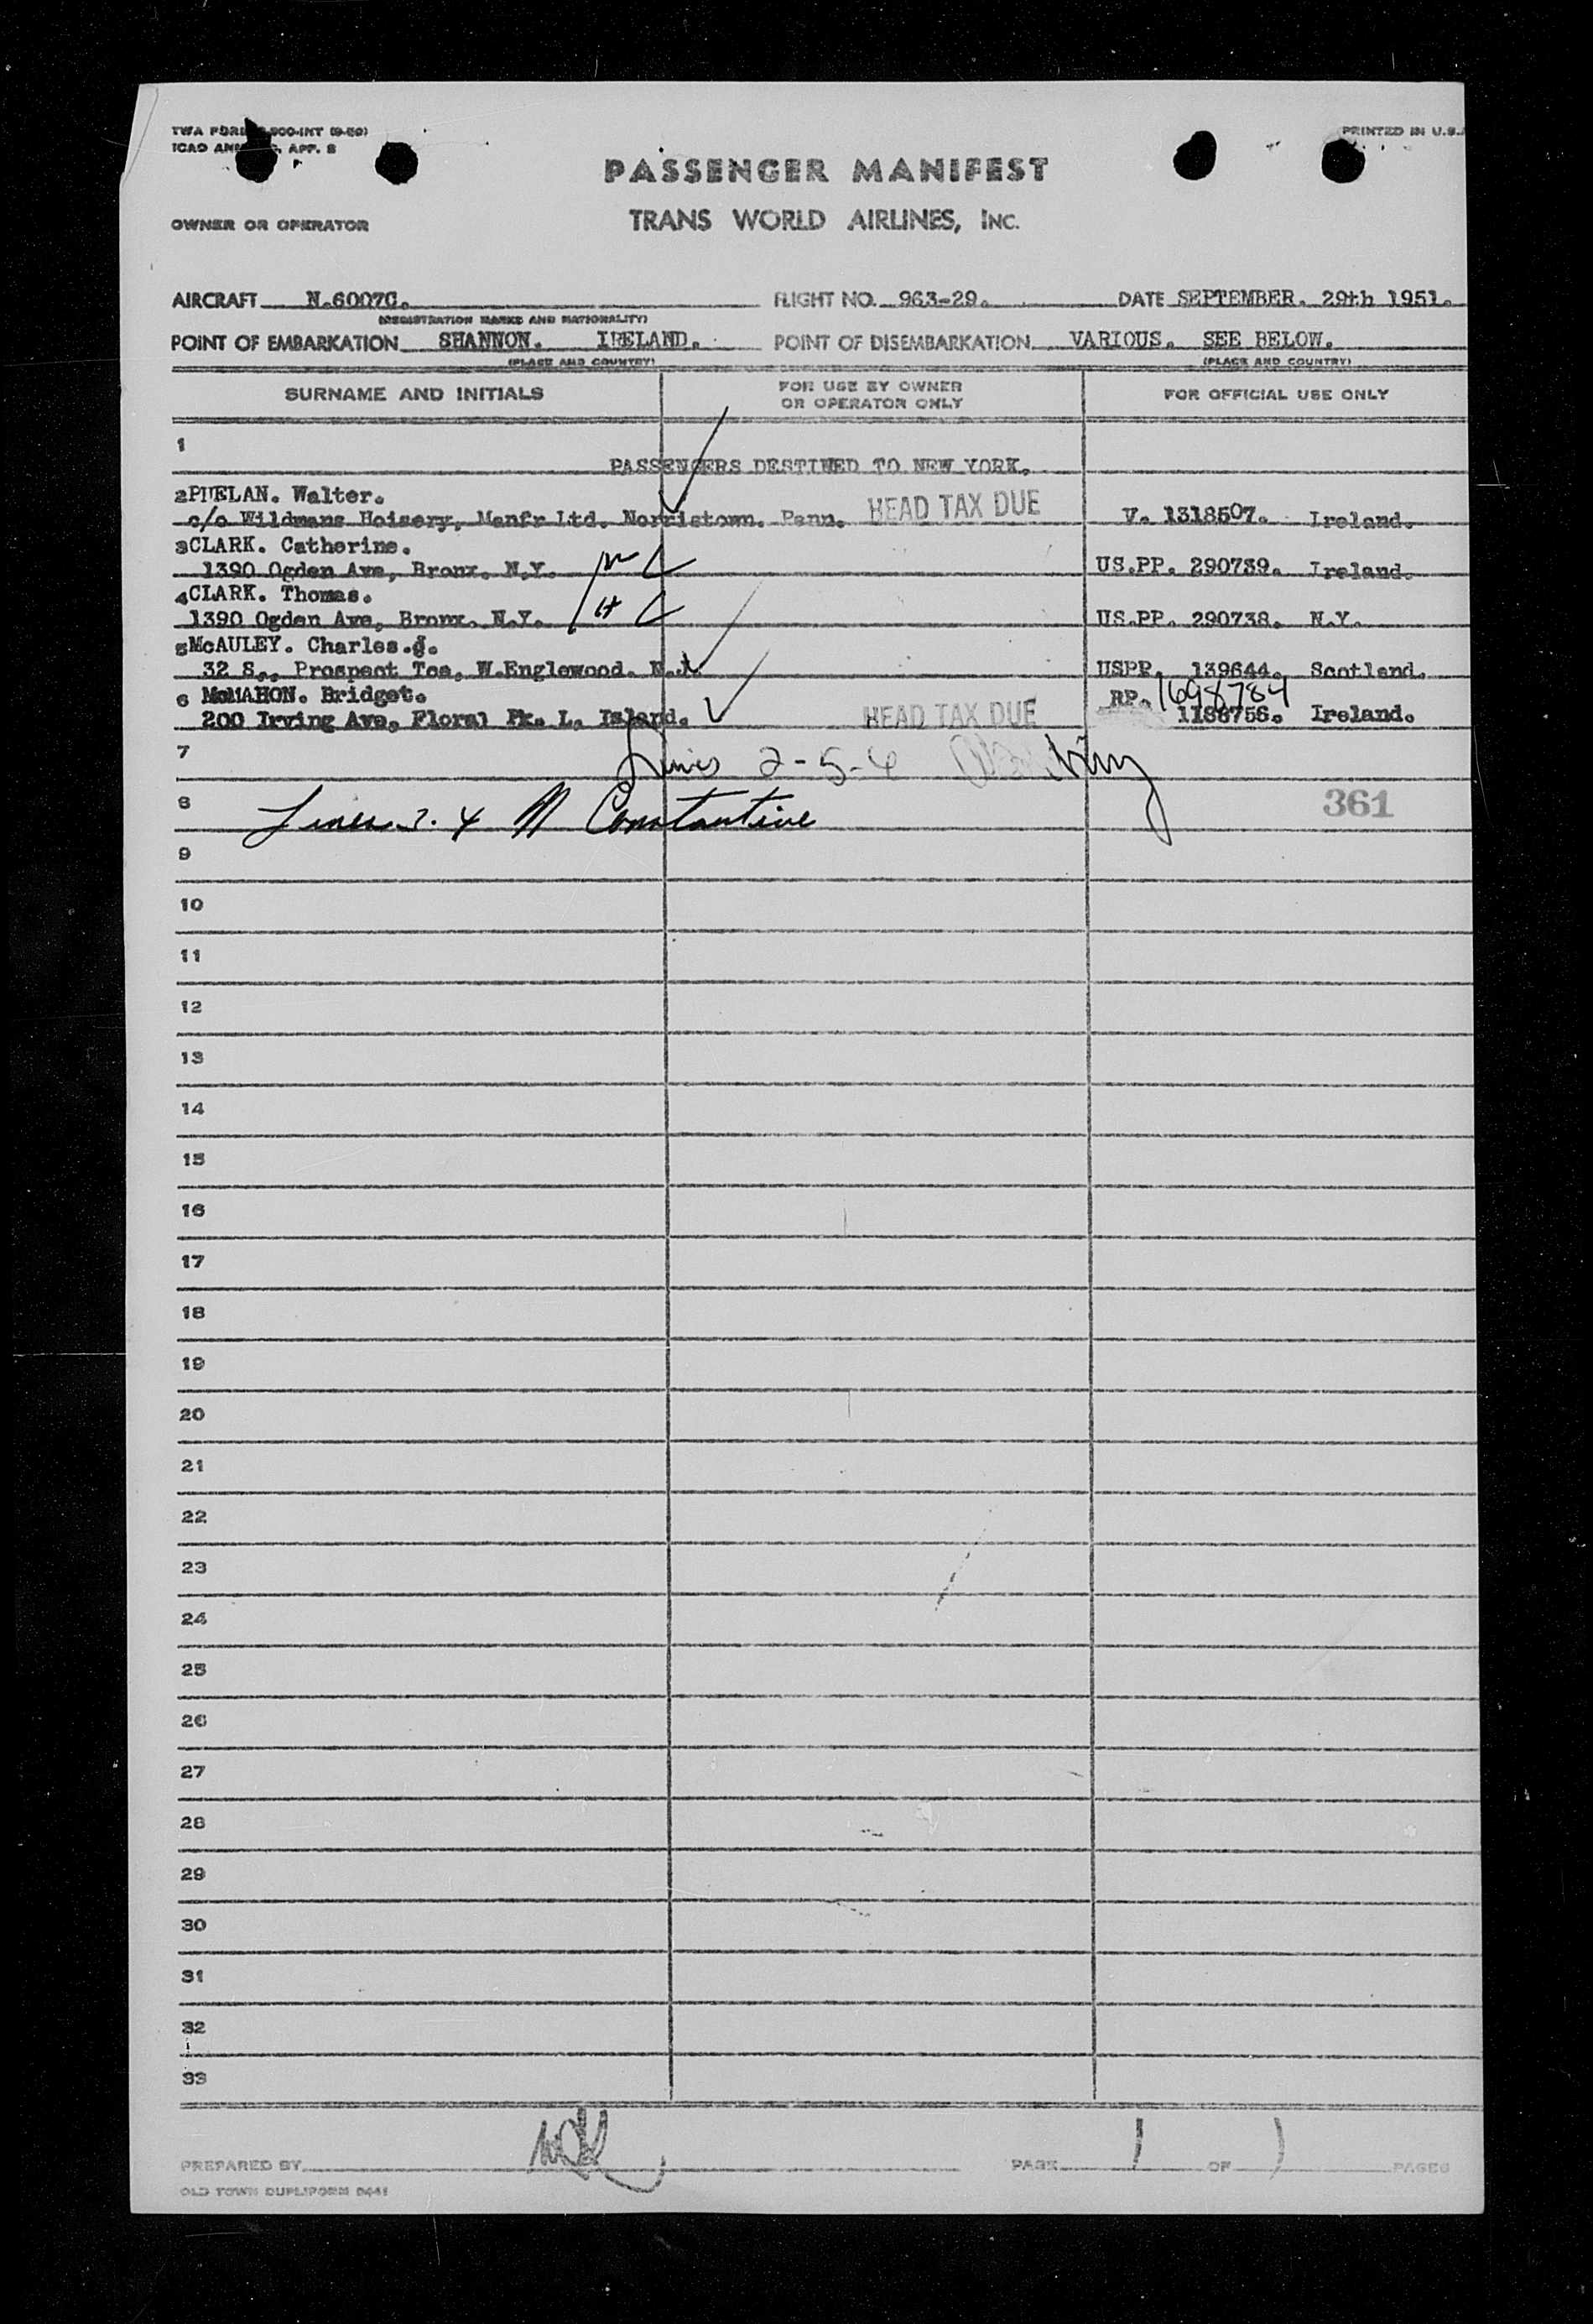 TWA FORM 900-INT (9-50)
PRINTED IN U.S.
ICAO APP. 8
PASSENGER MANIFEST
OWNER OR OPERATOR
TRANS WORLD AIRLINES, INC.
AIRCRAFT N.6007C. FLIGHT NO. 963-29. DATE SEPTEMBER. 29th 1951.
(REGISTRATION MARKS AND NATIONALITY)
POINT OF EMBARKATION SHANNON. IRELAND. POINT OF DISEMBARKATION VARIOUS. SEE BELOW.
(PLACE AND COUNTRY) (PLACE AND COUNTRY)
SURNAME AND INITIALS FOR USE BY OWNER OR OPERATOR ONLY FOR OFFICIAL USE ONLY
1
PASSENGERS DESTINED TO NEW YORK.
2 PHELAN. Walter.
c/o Wildmans Hoisery, Manfr Ltd. Norristown. Penn. HEAD TAX DUE V. 1318507. Ireland.
3 CLARK. Catherine.
1390 Ogden Ave, Bronx. N.Y. US.PP. 290739. Ireland.
4 CLARK. Thomas.
1390 Ogden Ave, Bronx. N.Y. US.PP. 290738. N.Y.
5 McAULEY. Charles.J.
32 S., Prospect Tce, W.Englewood. N.J. USPP. 139644. Scotland.
6 McMAHON. Bridget. RP. 1698784
200 Irving Ave, Floral Pk. L. Island. HEAD TAX DUE 1188756. Ireland.
7 Lines 2-5-6
8 Lines 3. 4 M Constantine 361
9
10
11
12
13
14
15
16
17
18
19
20
21
22
23
24
25
26
27
28
29
30
31
32
33
PREPARED BY PAGE 1 OF 1 PAGES
OLD TOWN DUPLIFORM 9441